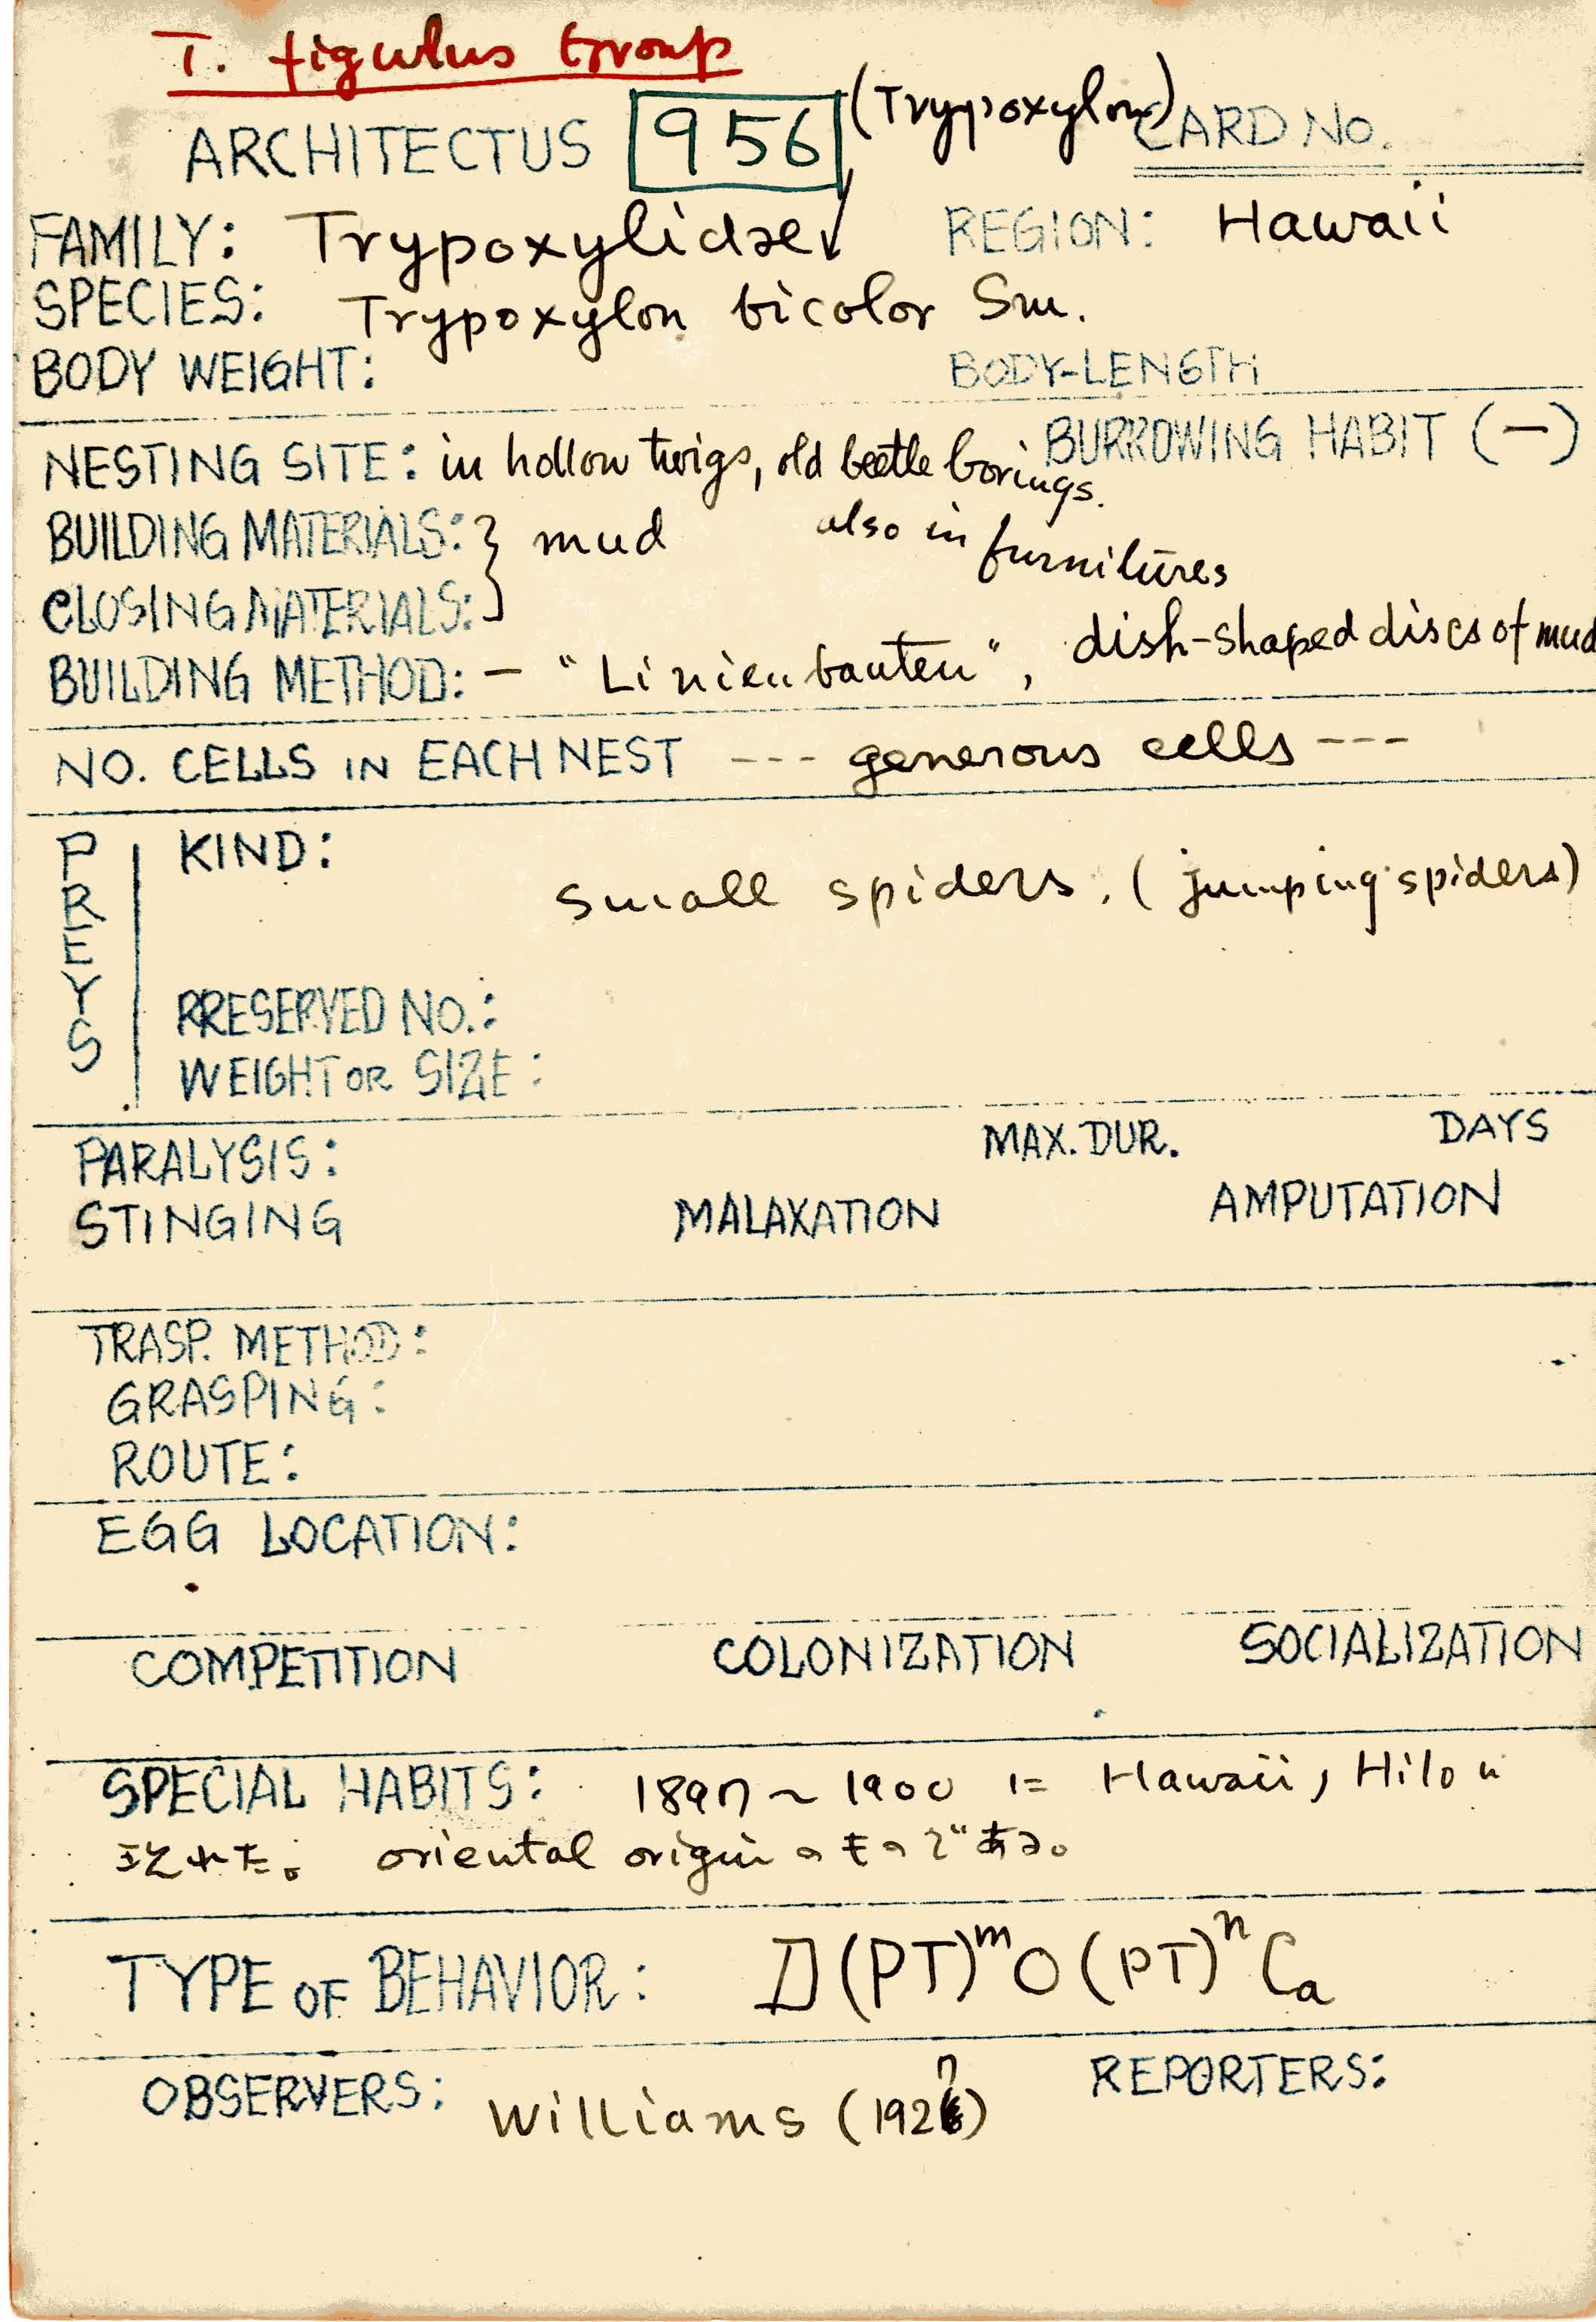 T. figulus Group
ARCHITECTUS 956 (Trypoxylon) CARD No.
FAMILY: Trypoxylidae REGION: Hawaii
SPECIES: Trypoxylon bicolor Sm.
BODY WEIGHT: BODY-LENGTH
BURROWING HABIT (-)
NESTING SITE: in hollow twigs, old beetle borings.
also in furnitures
BUILDING MATERIALS: } mud
CLOSING MATERIALS:
BUILDING METHOD: - "Linienbauten", dish-shaped discs of mud
NO. CELLS IN EACH NEST --- generous cells ---
PREYS
KIND:
small spiders. (jumping spiders)
PRESERVED NO.:
WEIGHT OR SIZE:
PARALYSIS: MAX. DUR. DAYS
STINGING MALAXATION AMPUTATION
TRASP. METHOD:
GRASPING:
ROUTE:
EGG LOCATION:
COMPETITION COLONIZATION SOCIALIZATION
SPECIAL HABITS: 1897~1900 に Hawaii, Hilo
oriental origin のものである。
TYPE OF BEHAVIOR: D(PT)ᵐO(PT)ⁿCa
OBSERVERS: Williams (1927) REPORTERS: